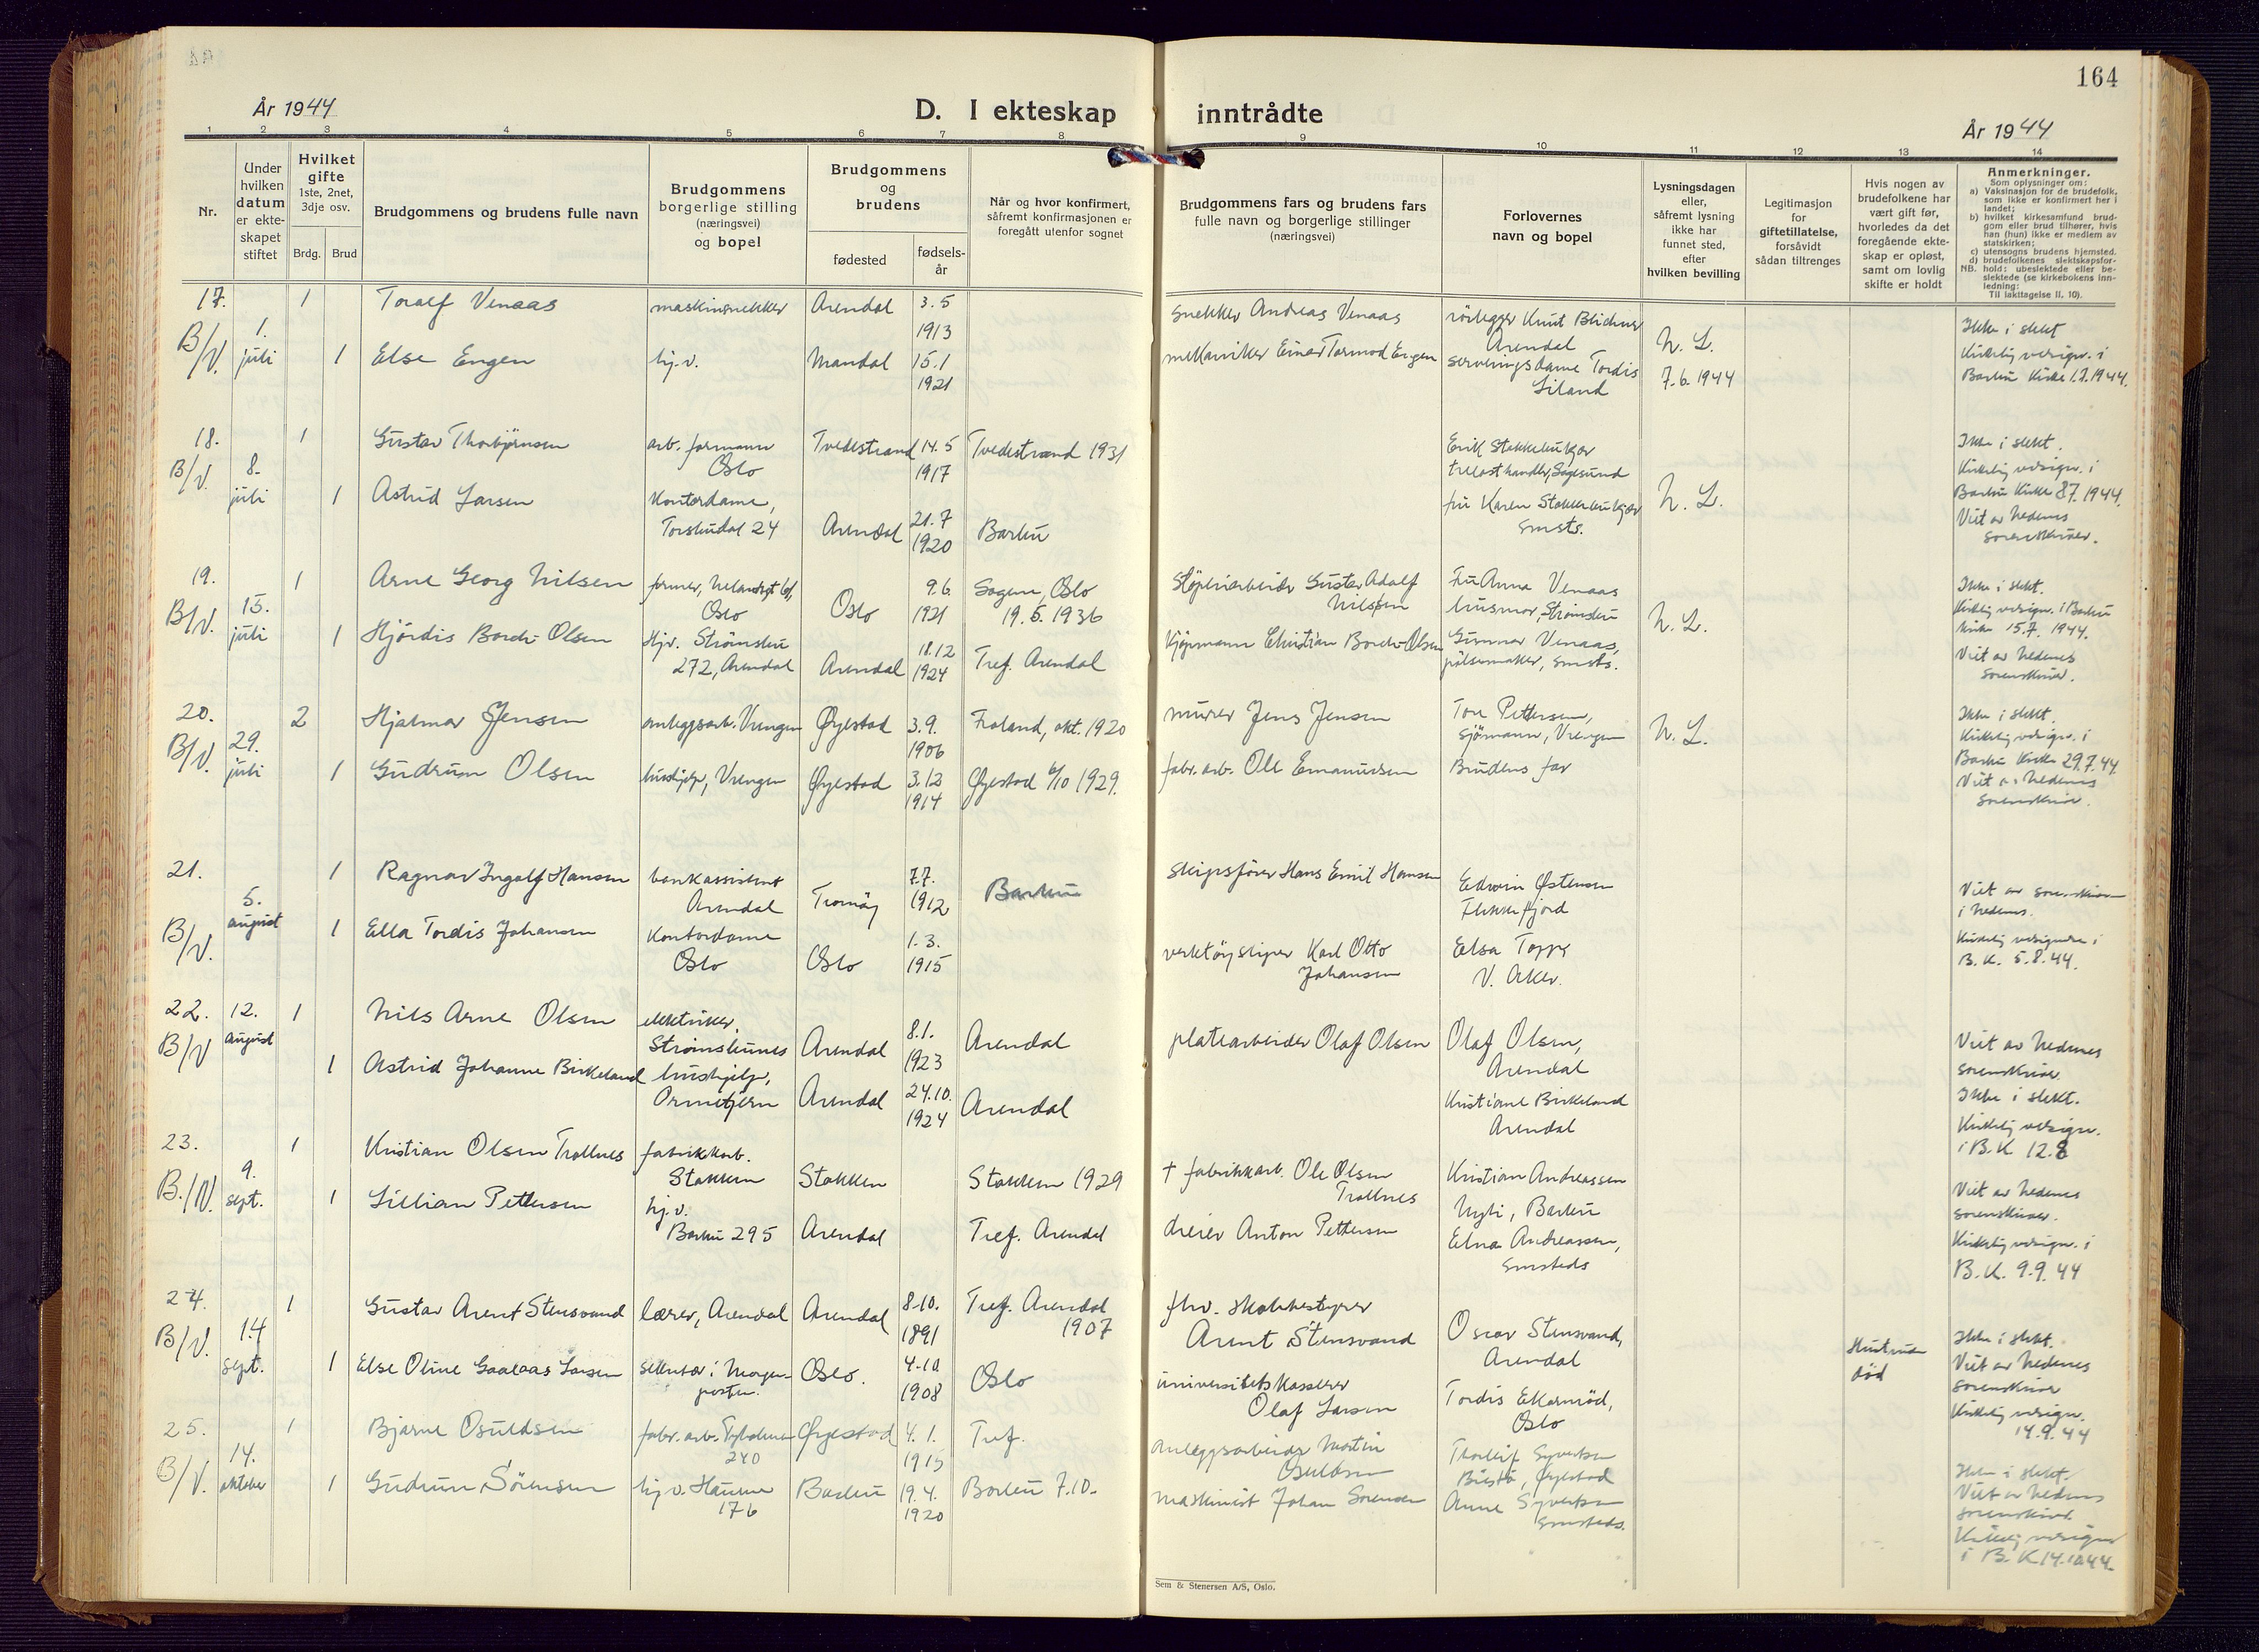 164
År 1944
D. I ekteskap inntrådte
År 1944
1 2 3 4 5 6 7 8 9 10 11 12 13 14
Nr.
Under
hvilken
datum
er ekte-
skapet
stiftet
Hvilket
gifte
1ste, 2net,
3dje osv.
Brdg. Brud
Brudgommens og brudens fulle navn
Brudgommens
borgerlige stilling
(næringsvei)
og bopel
Brudgommens
og
brudens
fødested
fødsels-
år
Når og hvor konfirmert,
såfremt konfirmasjonen er
foregått utenfor sognet
Brudgommens fars og brudens fars
fulle navn og borgerlige stillinger
(næringsvei)
Forlovernes
navn og bopel
Lysningsdagen
eller,
såfremt lysning
ikke har
funnet sted,
efter
hvilken bevilling
Legitimasjon
for
giftetillatelse,
forsåvidt
sådan tiltrenges
Hvis nogen av
brudefolkene har
vært gift før,
hvorledes da det
foregående ekte-
skap er opløst,
samt om lovlig
skifte er holdt
Anmerkninger.
Som oplysninger om:
a) Vaksinasjon for de brudefolk,
som ikke er konfirmert her i
landet;
b) hvilket kirkesamfund brud-
gom eller brud tilhører, hvis
han (hun) ikke er medlem av
statskirken;
c) utensogns brudens hjemsted.
d) brudefolkenes slektskapsfor-
NB. hold: ubeslektede eller be-
slektede (se kirkebokens inn-
ledning:
Til iakttagelse II, 10).
17. 1 Toralf Venaas maskinsnekker Arendal 3.5
1913
snekker Andreas Venaas
rørlegger Knut
Arendal
B/V. 1. juli
1 Else Engen hj.v. Mandal 15.1
1921
mekaniker Einar Tormod Engen
serveringsdame Tordis
Liland
N. L.
7.6.1944
Ikke i slekt
Kirkelig velsign. i
Barbu Kirke 1.7.1944.
18. 1 Gustav Thorbjørnsen arb. formann
Oslo
Tvedestrand 14.5
1917
Tvedestrand 1931
Erik
trelasthandler,
B/V. 8. juli
1 Astrid Larsen Kontordame,
Torskedal 24
Arendal 21.7
1920
Barbu
fru Karen
smsts.
N. L.
Ikke i slekt.
Kirkelig velsign. i
Barbu Kirke 8.7.1944.
Viet av Nedenes
sorenskriver.
19. 1 Arne Georg Nilsen former,
Oslo
Oslo 9.6.
1921
Sagene, Oslo
19.5.1936
Støperiarbeider Gustav Adolf
Nilsen
Fru Anna Venaas
husmor, Strømsbu
B/V. 15. juli
1 Hjørdis Borch-Olsen Hjv. Strømsbu
272, Arendal
Arendal 18.12
1924
Tref. Arendal
Kjøpmann Christian Borch-Olsen
Gunnar Venaas,
pølsemaker, smsts.
N. L.
Ikke i slekt.
Kirkelig velsign. i Barbu
kirke 15.7. 1944.
Viet av Nedenes
sorenskriver.
20. 2 Hjalmar Jensen anleggsarb. Vrengen Øyestad 3.9.
1906
Froland, okt. 1920
murer Jens Jensen
Tore Pettersen,
sjømann, Vrengen
B/V. 29. juli
1 Gudrun Olsen hushjelp, Vrengen Øyestad 3.12
1914
Øyestad 6/10 1929.
fabr. arb. Ole Emanuelsen
Brudens far
N. L.
Ikke i slekt.
Kirkelig velsign. i
Barbu Kirke 29.7.44.
Viet av Nedenes
sorenskriver.
21. 1 Ragnar Ingolf Hansen bankassistent
Arendal
Tromøy 7.7.
1912
Barbu
skipsfører Hans Emil Hansen
Edwin Østensen
Flekkefjord
B/V. 5. august
1 Ella Tordis Johansen Kontordame
Oslo
Oslo 1.3.
1915
verktøysliper Karl Otto
Johansen
Elsa Toppe
V. Aker.
Viet av sorenskriver
i Nedenes.
Kirkelig velsignelse i
B. K. 5.8.44.
22. 12. august 1 Nils Arne Olsen elektriker,
Strømsbunes
Arendal 8.1.
1923
Arendal
platearbeider Olaf Olsen
Olaf Olsen,
Arendal
B/V
1 Astrid Johanne Birkeland hushjelp,
Arendal 24.10.
1924
Arendal
Kristiane Birkeland
Arendal
Viet av Nedenes
sorenskriver
Ikke i slekt.
Kirkelig velsign.
i B. K. 12.8
23. 1 Kristian Olsen Trollnes fabrikkarb.
Stokken
Stokken
Stokken 1929
† fabrikkarb. Ole Olsen
Trollnes
Kristian Andreassen
B./V. 9. sept.
1 Lillian Pettersen hj.v.
Barbu 295
Arendal
Tref. Arendal
dreier Anton Pettersen
Barbu
Edna Andreassen,
smsteds
Viet av Nedenes
sorenskriver.
Kirkelig velsign. i
B. K. 9.9.44
24. 1 Gustav Arent Stensvand lærer, Arendal Arendal 8.10.
1891
Tref. Arendal
1907
fhv. skolebestyrer
Arent Stensvand
Oscar Stensvand,
Arendal
B/V. 14 sept.
1 Else Oline Gaalaas Larsen sekretær i Morgen-
posten.
Oslo. 4.10
1908
Oslo
universitetskasserer
Olaf Larsen
Tordis
Oslo
Hustruen
død
Ikke i slekt.
Viet av Nedenes
sorenskriver
Kirkelig velsign.
14.9.44
25. 1 Bjarne Osuldsen fabr. arb.
240
Øyestad 4.1.
1915
Tref.
anleggsarbeider Martin
Osuldsen
Thorleif Syvertsen
Øyestad
B/V. 14. oktober
1 Gudrun Sørensen hj.v.
176
Barbu 19.4.
1920
Barbu 7.10.
maskinist Johan Sørensen
Anne Syvertsen
smsteds.
Ikke i slekt.
Viet av Nedenes
sorenskriver
Kirkelig velsignet
i B. K 14.10.44.
Sem & Stenersen A/S, Oslo.